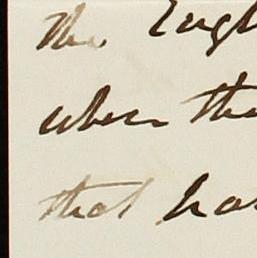 the Engl
when the
that ha